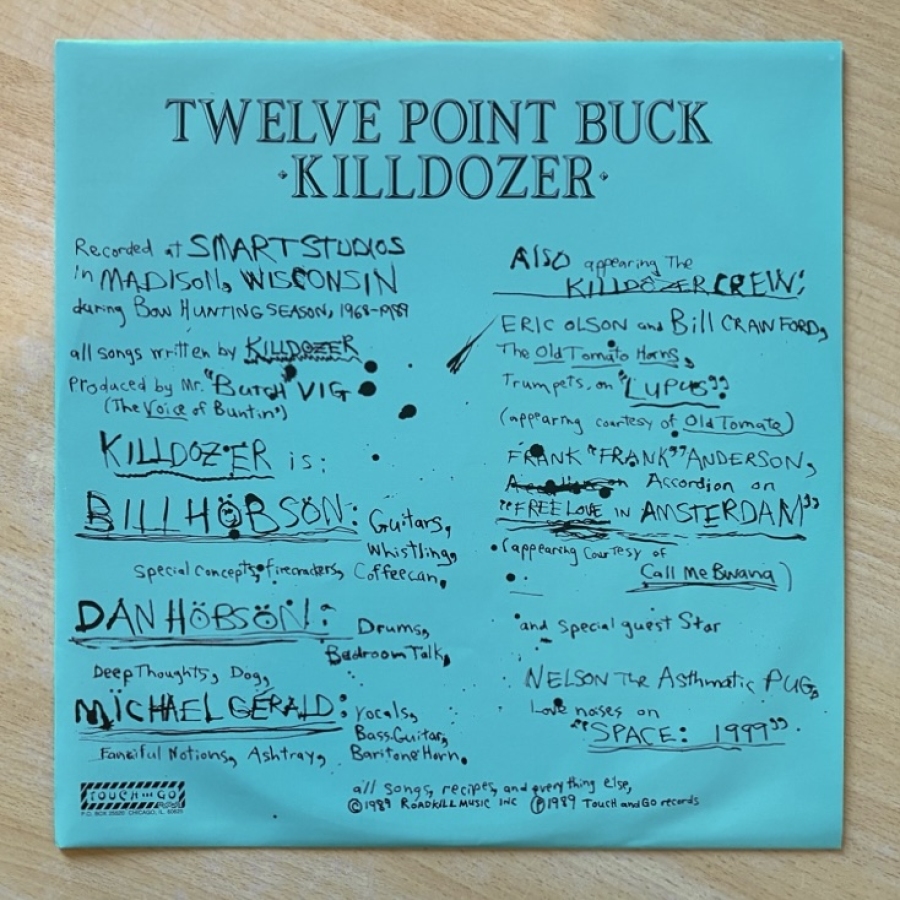 TWELVE POINT BUCK
·KILLDOZER·
Recorded at SMART STUDIOS
in MADISON, WISCONSIN
during BOW HUNTING SEASON, 1968-1989
all songs written by KILLDOZER
Produced by Mr. "Butch" VIG
(The Voice of Buntin')
KILLDOZER is:
BILL HÖBSÖN: Guitars,
Whistling,
Special concepts, firecrackers, Coffeecan,
DAN HÖBSÖN: Drums,
Bedroom Talk,
Deep Thoughts, Dog,
MÏCHAEL GÉRALD: vocals,
Bass Guitar,
Fanciful Notions, Ashtray, Baritone Horn.
Also appearing The
KILLDOZER CREW:
ERIC OLSON and Bill CRAWFORD,
The Old Tomato Horns,
Trumpets, on "LUPUS"
(appearing courtesy of Old Tomato)
FRANK "FRANK" ANDERSON,
Accordion on
"FREE LOVE IN AMSTERDAM"
(appearing courtesy of
Call Me Bwana)
and special guest Star
NELSON THE Asthmatic PUG,
Love noises on
"SPACE: 1999"
all songs, recipes, and everything else,
©1989 ROADKILL MUSIC INC ℗1989 Touch and Go records
TOUCH AND GO
P.O. BOX 25520 CHICAGO, IL. 60625